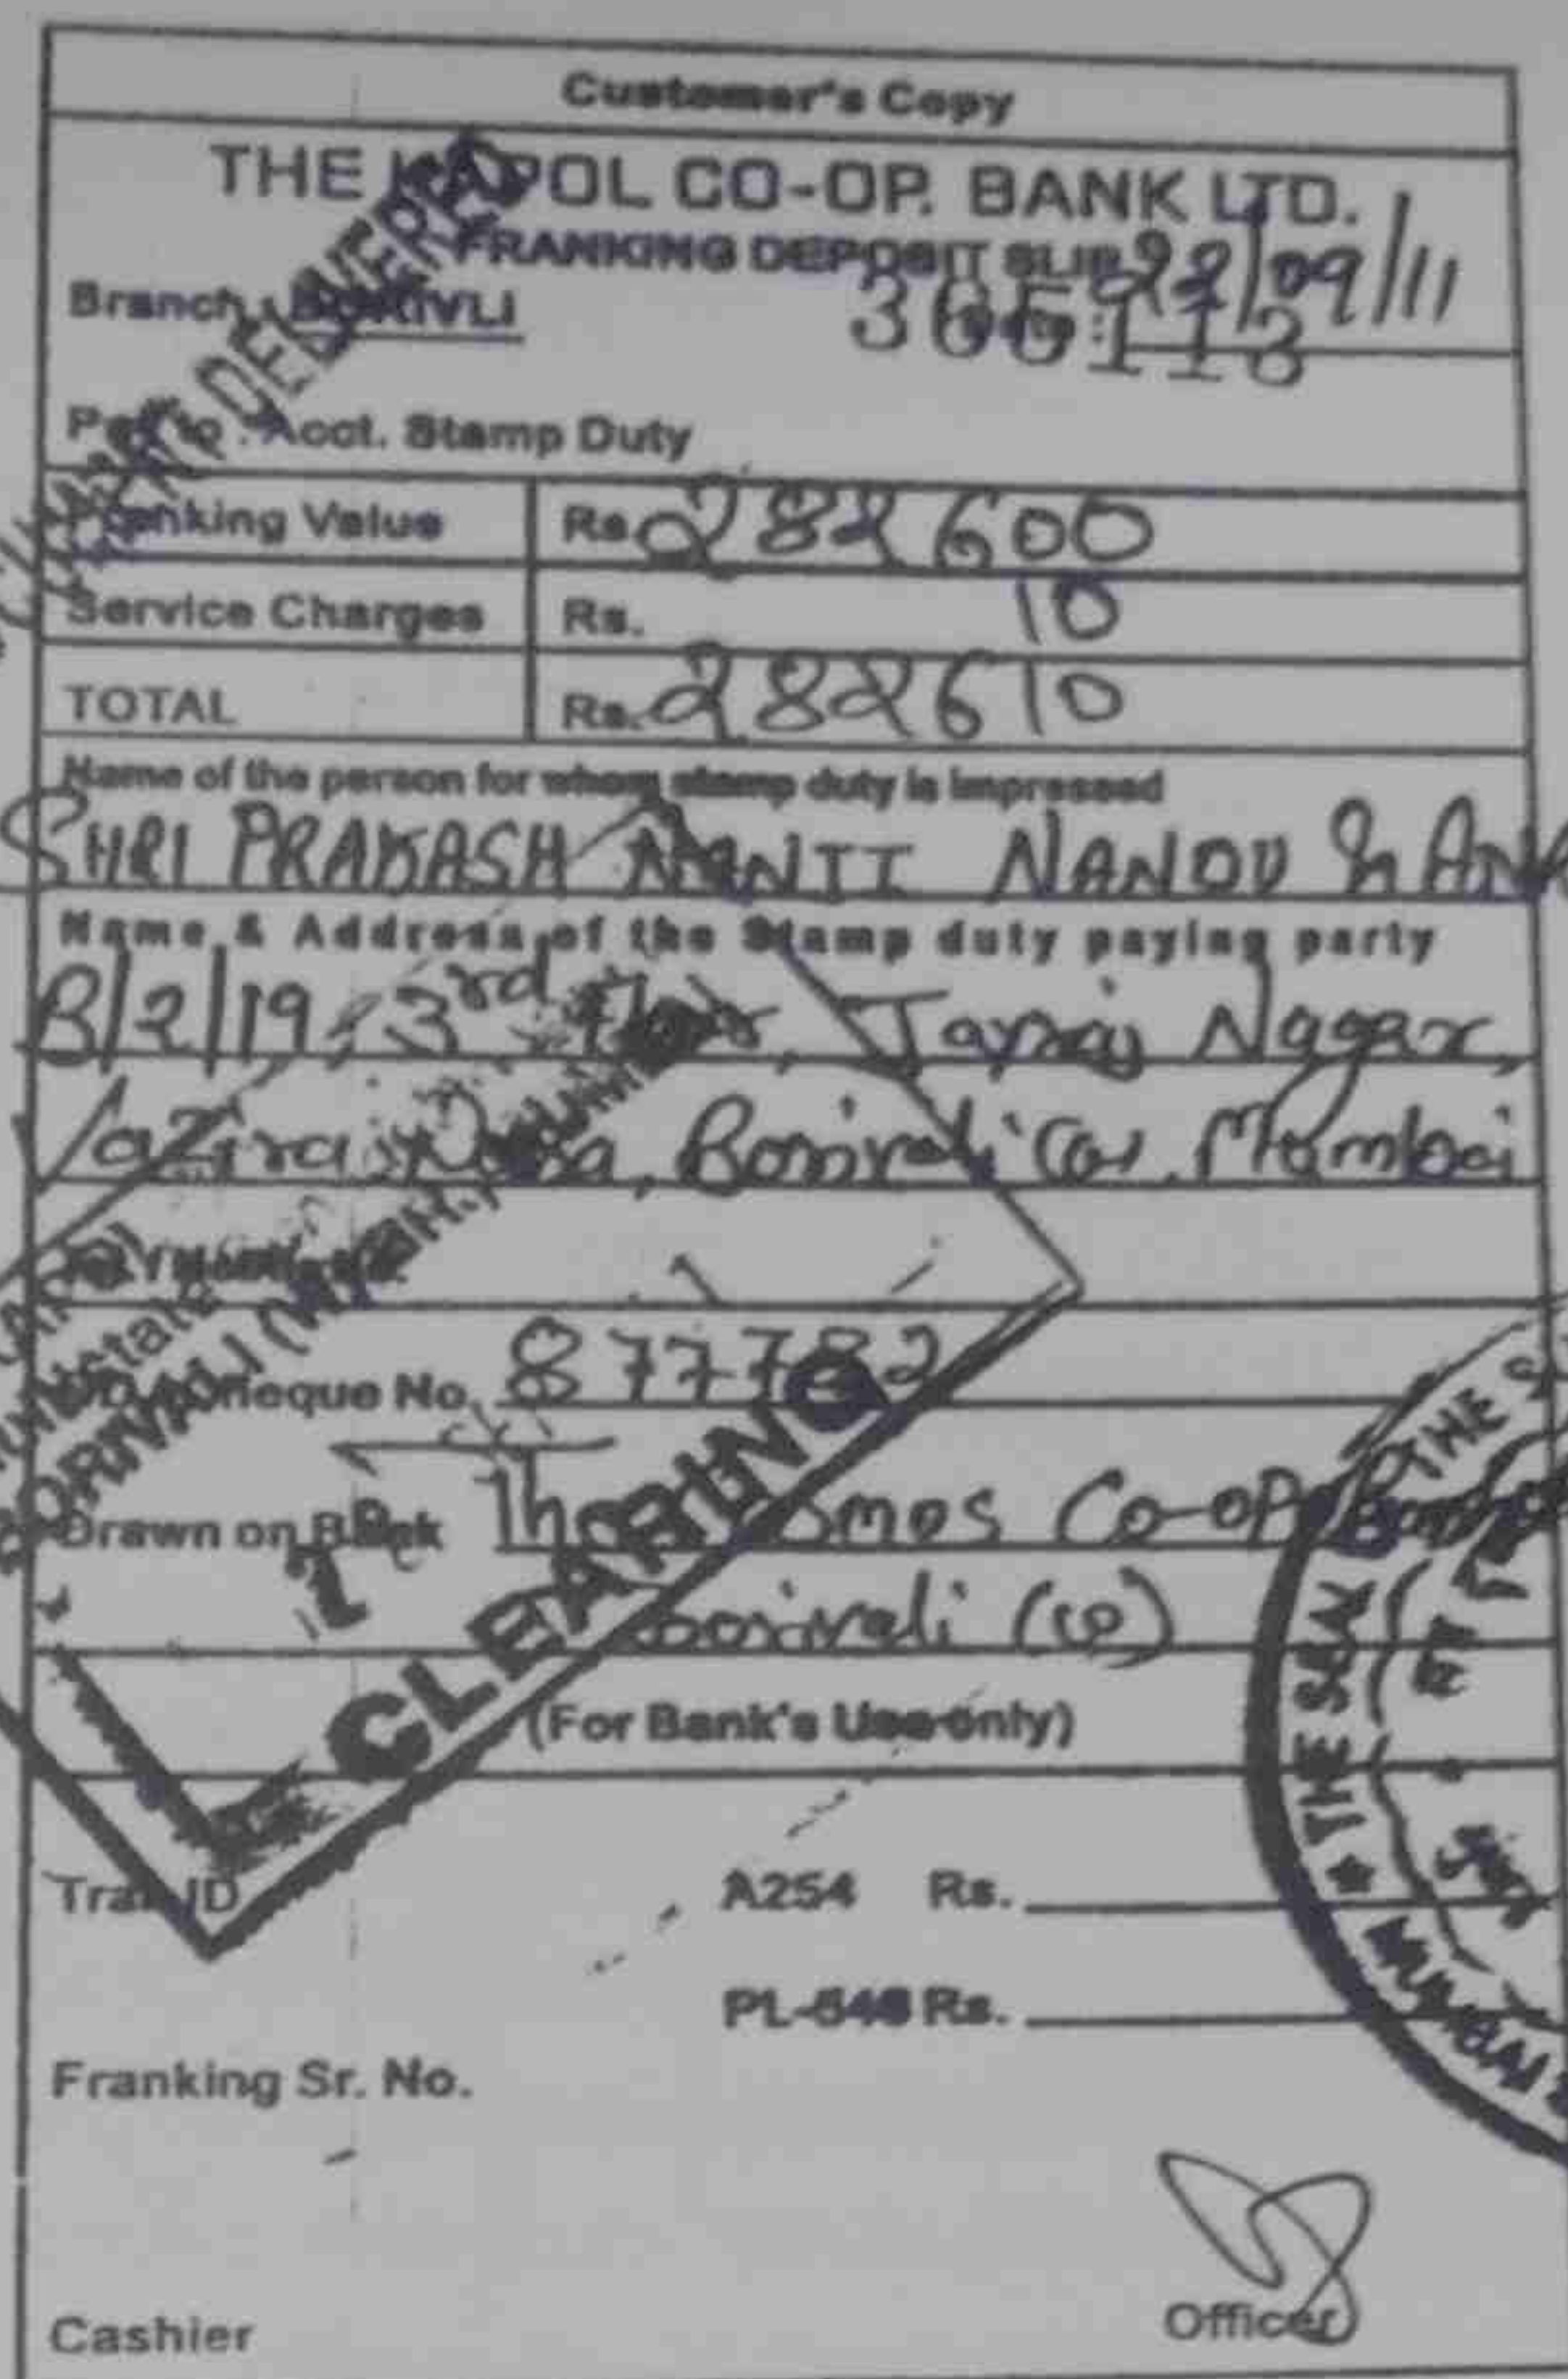 Customer's Copy
THE KAPOL CO-OP. BANK LTD.
FRANKING DEPOSIT SLIP
Branch : BORIVLI 22/09/11
365113
Pay to : Acct. Stamp Duty
Franking Value Rs. 282600
Service Charges Rs. 10
TOTAL Rs. 282610
Name of the person for whom stamp duty is impressed
SHRI PRAKASH NANDU &
Name & Address of the Stamp duty paying party
B/2/19, 3rd Floor, Nagar,
Vazira Naka, Borivali (W), Mumbai
Cheque No. 877782
Drawn on Bank The Cosmos Co-op Bank
Borivali (W)
DOCUMENT DELIVERED
BORIVALI (W)
CLEARING
(For Bank's Use only)
Tran ID A254 Rs.
PL-548 Rs.
Franking Sr. No.
THE
MUMBAI
Cashier Officer